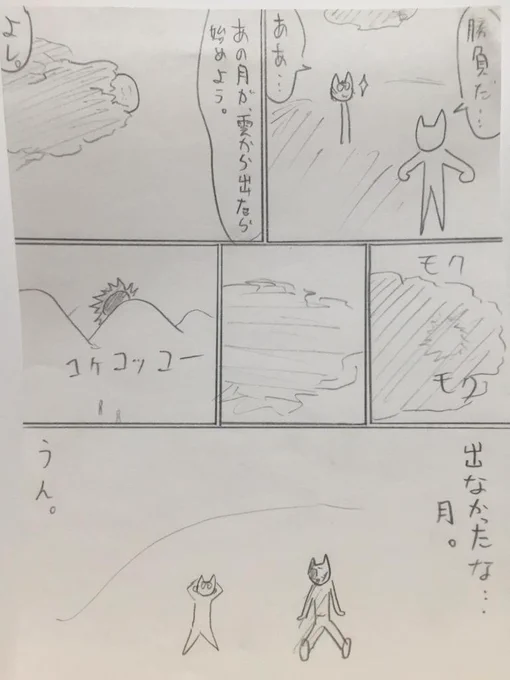 勝負だ…
ああ…
あの月が、雲から出たなら
始めよう。
よし。
モク
モク
コケコッコー
出なかったな…
月。
うん。